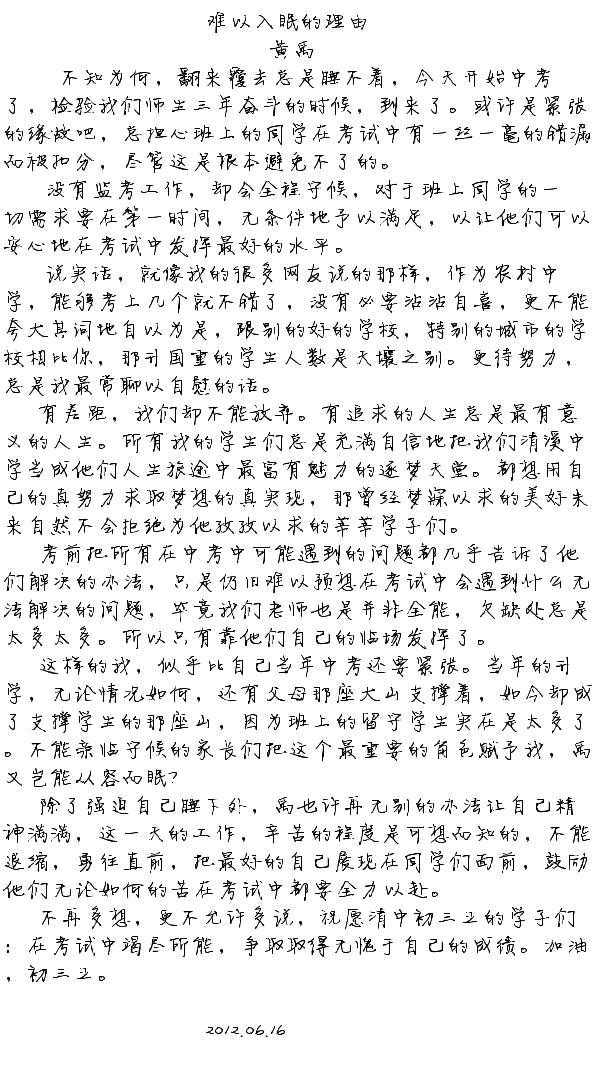 难以入眠的理由
黄禹
不知为何，翻来覆去总是睡不着，今天开始中考
了，检验我们师生三年奋斗的时候，到来了。或许是紧张
的缘故吧，总担心班上的同学在考试中有一丝一毫的错漏
而被扣分，尽管这是根本避免不了的。
没有监考工作，却会全程守候，对于班上同学的一
切需求要在第一时间，无条件地予以满足，以让他们可以
安心地在考试中发挥最好的水平。
说实话，就像我的很多网友说的那样，作为农村中
学，能够考上几个就不错了，没有必要沾沾自喜，更不能
夸大其词地自以为是，跟别的好的学校，特别的城市的学
校相比你，那升国重的学生人数是天壤之别。更待努力，
总是我最常聊以自慰的话。
有差距，我们却不能放弃。有追求的人生总是最有意
义的人生。所有我的学生们总是充满自信地把我们清溪中
学当成他们人生旅途中最富有魅力的逐梦天堂。都想用自
己的真努力求取梦想的真实现，那曾经梦寐以求的美好未
来自然不会拒绝为他孜孜以求的莘莘学子们。
考前把所有在中考中可能遇到的问题都几乎告诉了他
们解决的办法，只是仍旧难以预想在考试中会遇到什么无
法解决的问题，毕竟我们老师也是并非全能，欠缺处总是
太多太多。所以只有靠他们自己的临场发挥了。
这样的我，似乎比自己当年中考还要紧张。当年的升
学，无论情况如何，还有父母那座大山支撑着，如今却成
了支撑学生的那座山，因为班上的留守学生实在是太多了
。不能亲临守候的家长们把这个最重要的角色赋予我，禹
又岂能从容而眠？
除了强迫自己睡下外，禹也许再无别的办法让自己精
神满满，这一天的工作，辛苦的程度是可想而知的，不能
退缩，勇往直前，把最好的自己展现在同学们面前，鼓励
他们无论如何的苦在考试中都要全力以赴。
不再多想，更不允许多说，祝愿清中初三五的学子们
：在考试中竭尽所能，争取取得无愧于自己的成绩。加油
，初三五。
2012.06.16